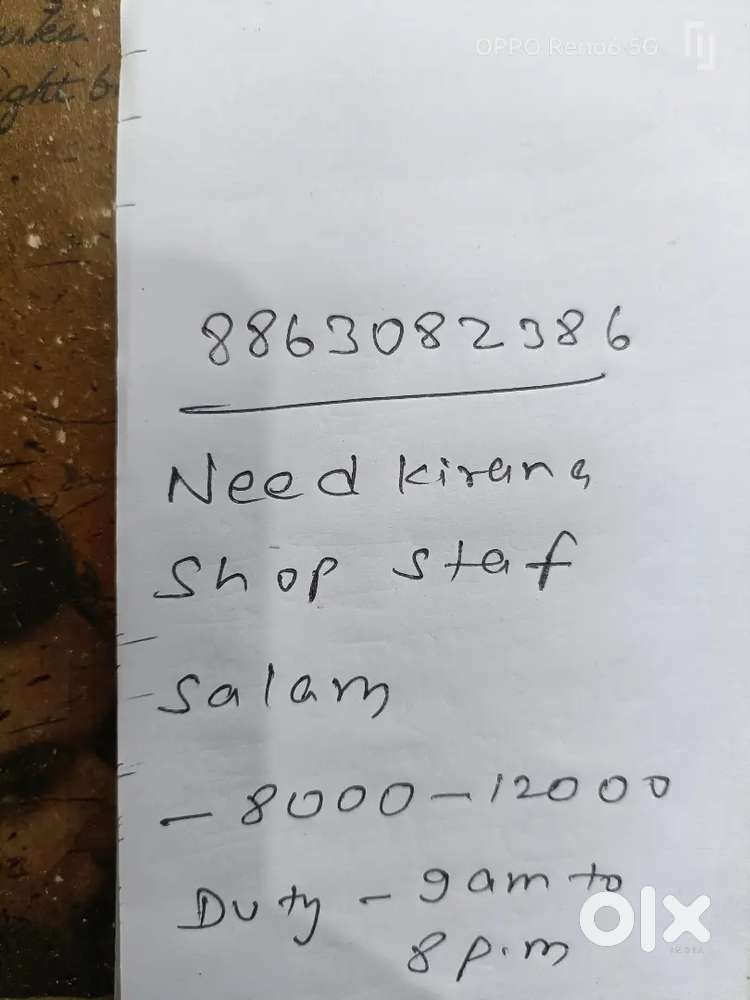 arks
ight b
OPPO Reno6 5G
8863082386
Need kirana
Shop staf
Salam
- 8000-12000
Duty - 9am to
8 p.m
olx
INDIA